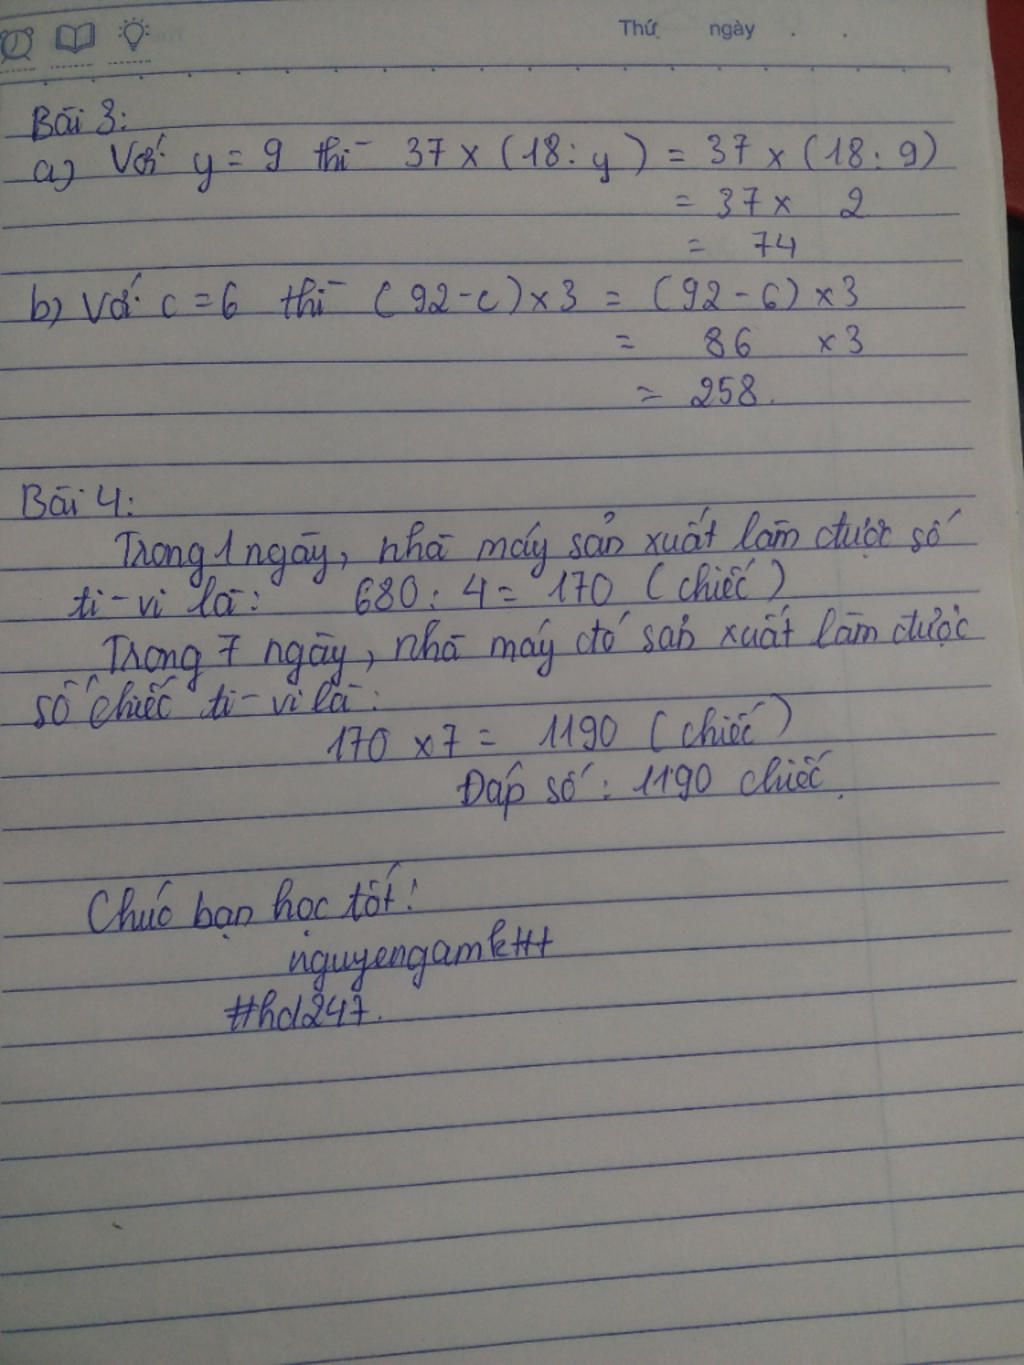 Thứ ngày . .
Bài 3:
a) Với y = 9 thì 37 x (18 : y) = 37 x (18 : 9)
= 37 x 2
= 74
b) Với c = 6 thì (92 - c) x 3 = (92 - 6) x 3
= 86 x 3
= 258.
Bài 4:
Trong 1 ngày, nhà máy sản xuất làm được số
ti-vi là: 680 : 4 = 170 (chiếc)
Trong 7 ngày, nhà máy đó sản xuất làm được
số chiếc ti-vi là:
170 x 7 = 1190 (chiếc)
Đáp số: 1190 chiếc.
Chúc bạn học tốt!
#hd247.